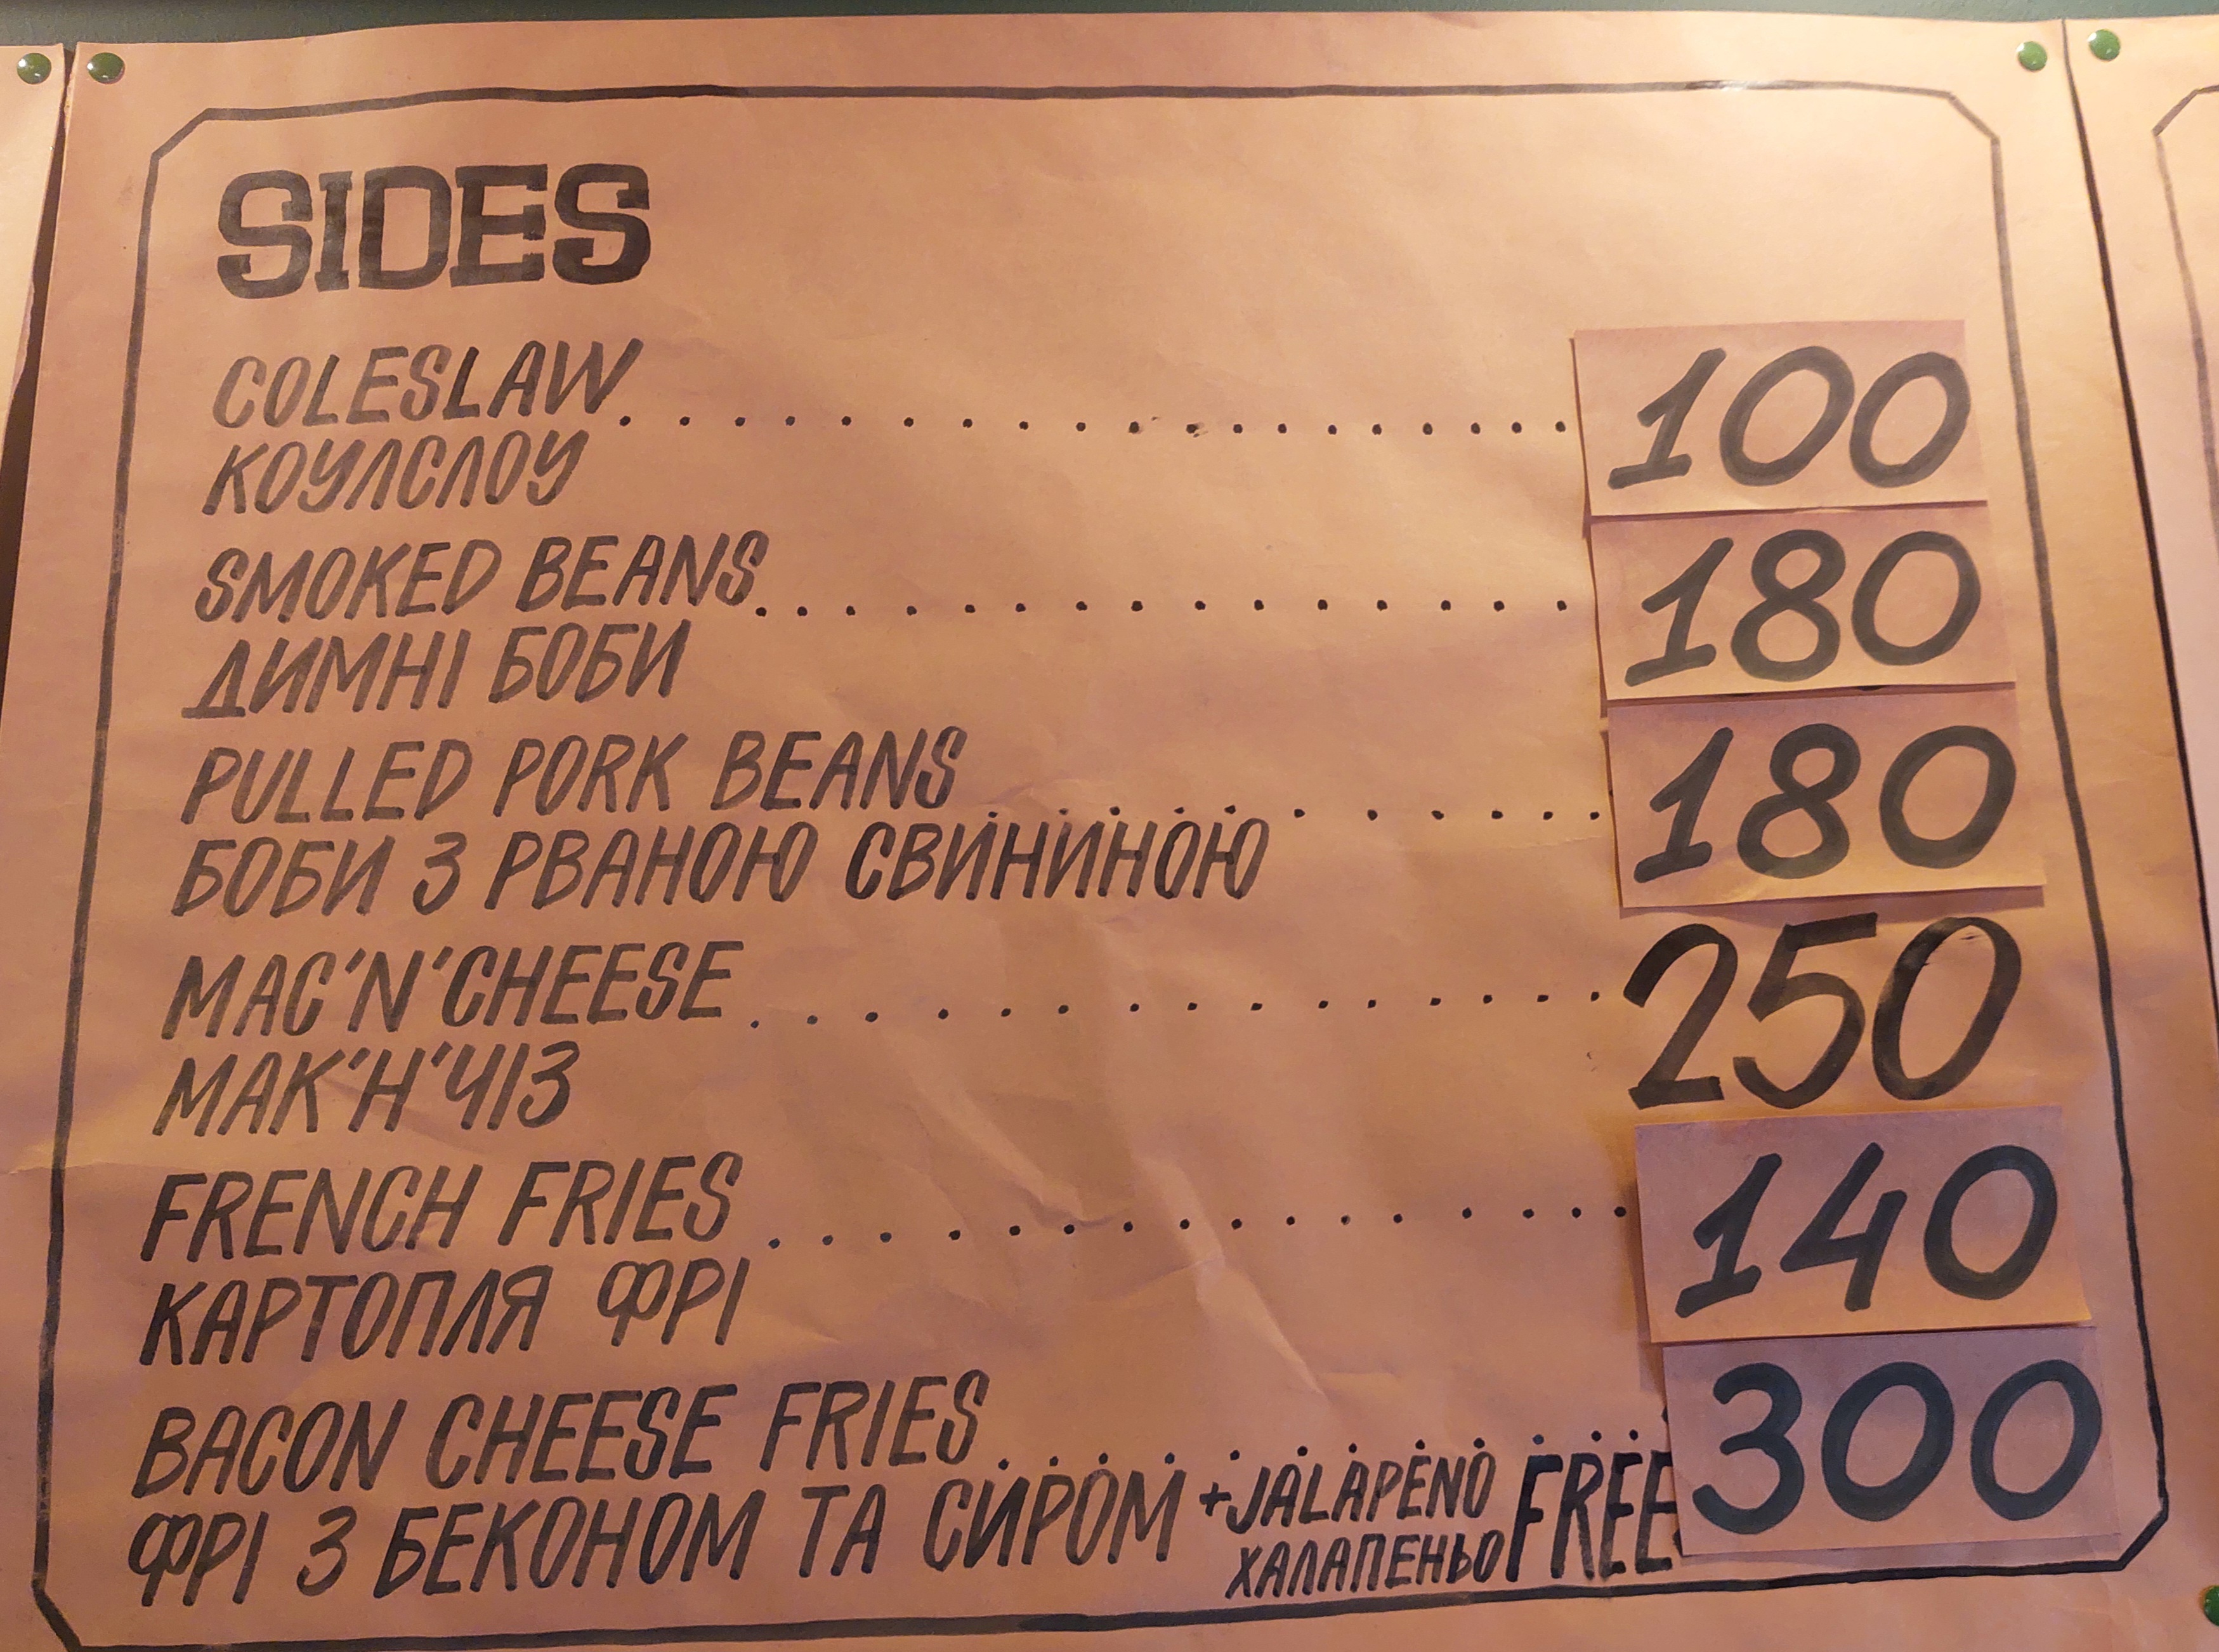 SIDES
COLESLAW . . . . . . . . . . . . . . . . . 100
КОУЛСЛОУ
SMOKED BEANS . . . . . . . . . . . . . . . 180
ДИМНІ БОБИ
PULLED PORK BEANS . . . . . . . . . . . 180
БОБИ З РВАНОЮ СВИНИНОЮ
MAC'N'CHEESE . . . . . . . . . . . . . . 250
МАК'Н'ЧІЗ
FRENCH FRIES . . . . . . . . . . . . . . . 140
КАРТОПЛЯ ФРІ
BACON CHEESE FRIES . . . . . . . . . . . 300
ФРІ З БЕКОНОМ ТА СИРОМ +JALAPENO FREE
ХАЛАПЕНЬО